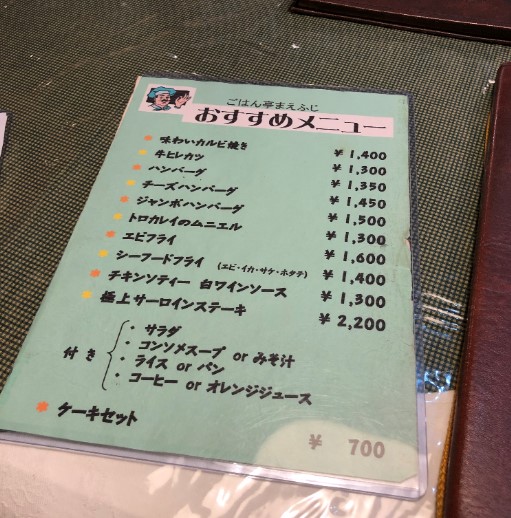 ごはん亭まえふじ
おすすめメニュー
味わいカルビ焼き ¥1,400
牛ヒレカツ ¥1,300
ハンバーグ ¥1,350
チーズハンバーグ ¥1,450
ジャンボハンバーグ ¥1,500
トロカレイのムニエル ¥1,300
エビフライ ¥1,600
シーフードフライ (エビ・イカ・サケ・ホタテ) ¥1,400
チキンソティー 白ワインソース ¥1,300
極上サーロインステーキ ¥2,200
付き
・サラダ
・コンソメスープ or みそ汁
・ライス or パン
・コーヒー or オレンジジュース
ケーキセット ¥ 700